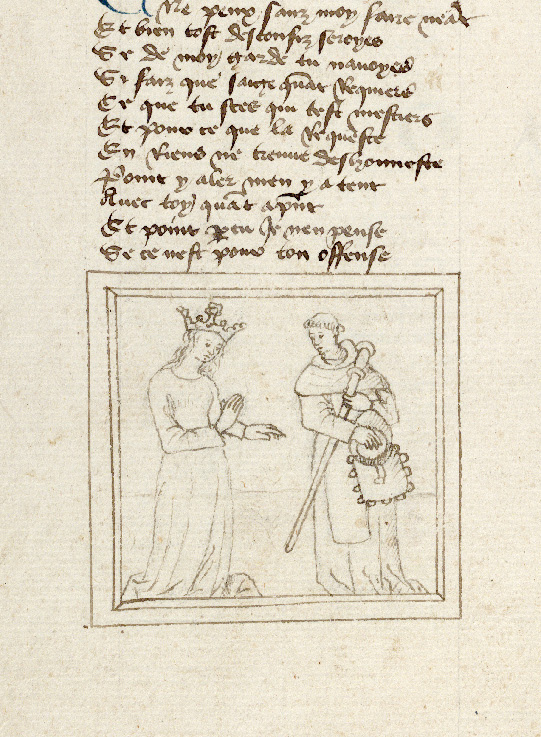 Ne peux sanz moy faire neant
Et bien tost desconfiz seroyes
Se de moy garde tu nauoyes
Si faiz que saige quāt Requiers
Ce que tu sces qui test mestiers
Et pour ce que ta Requeste
En Riens ne treuue deshonneste
Point y aler men y a tent
Auec toy quāt apñt
Et point Je nen pense
Se ce nest pour ton offense